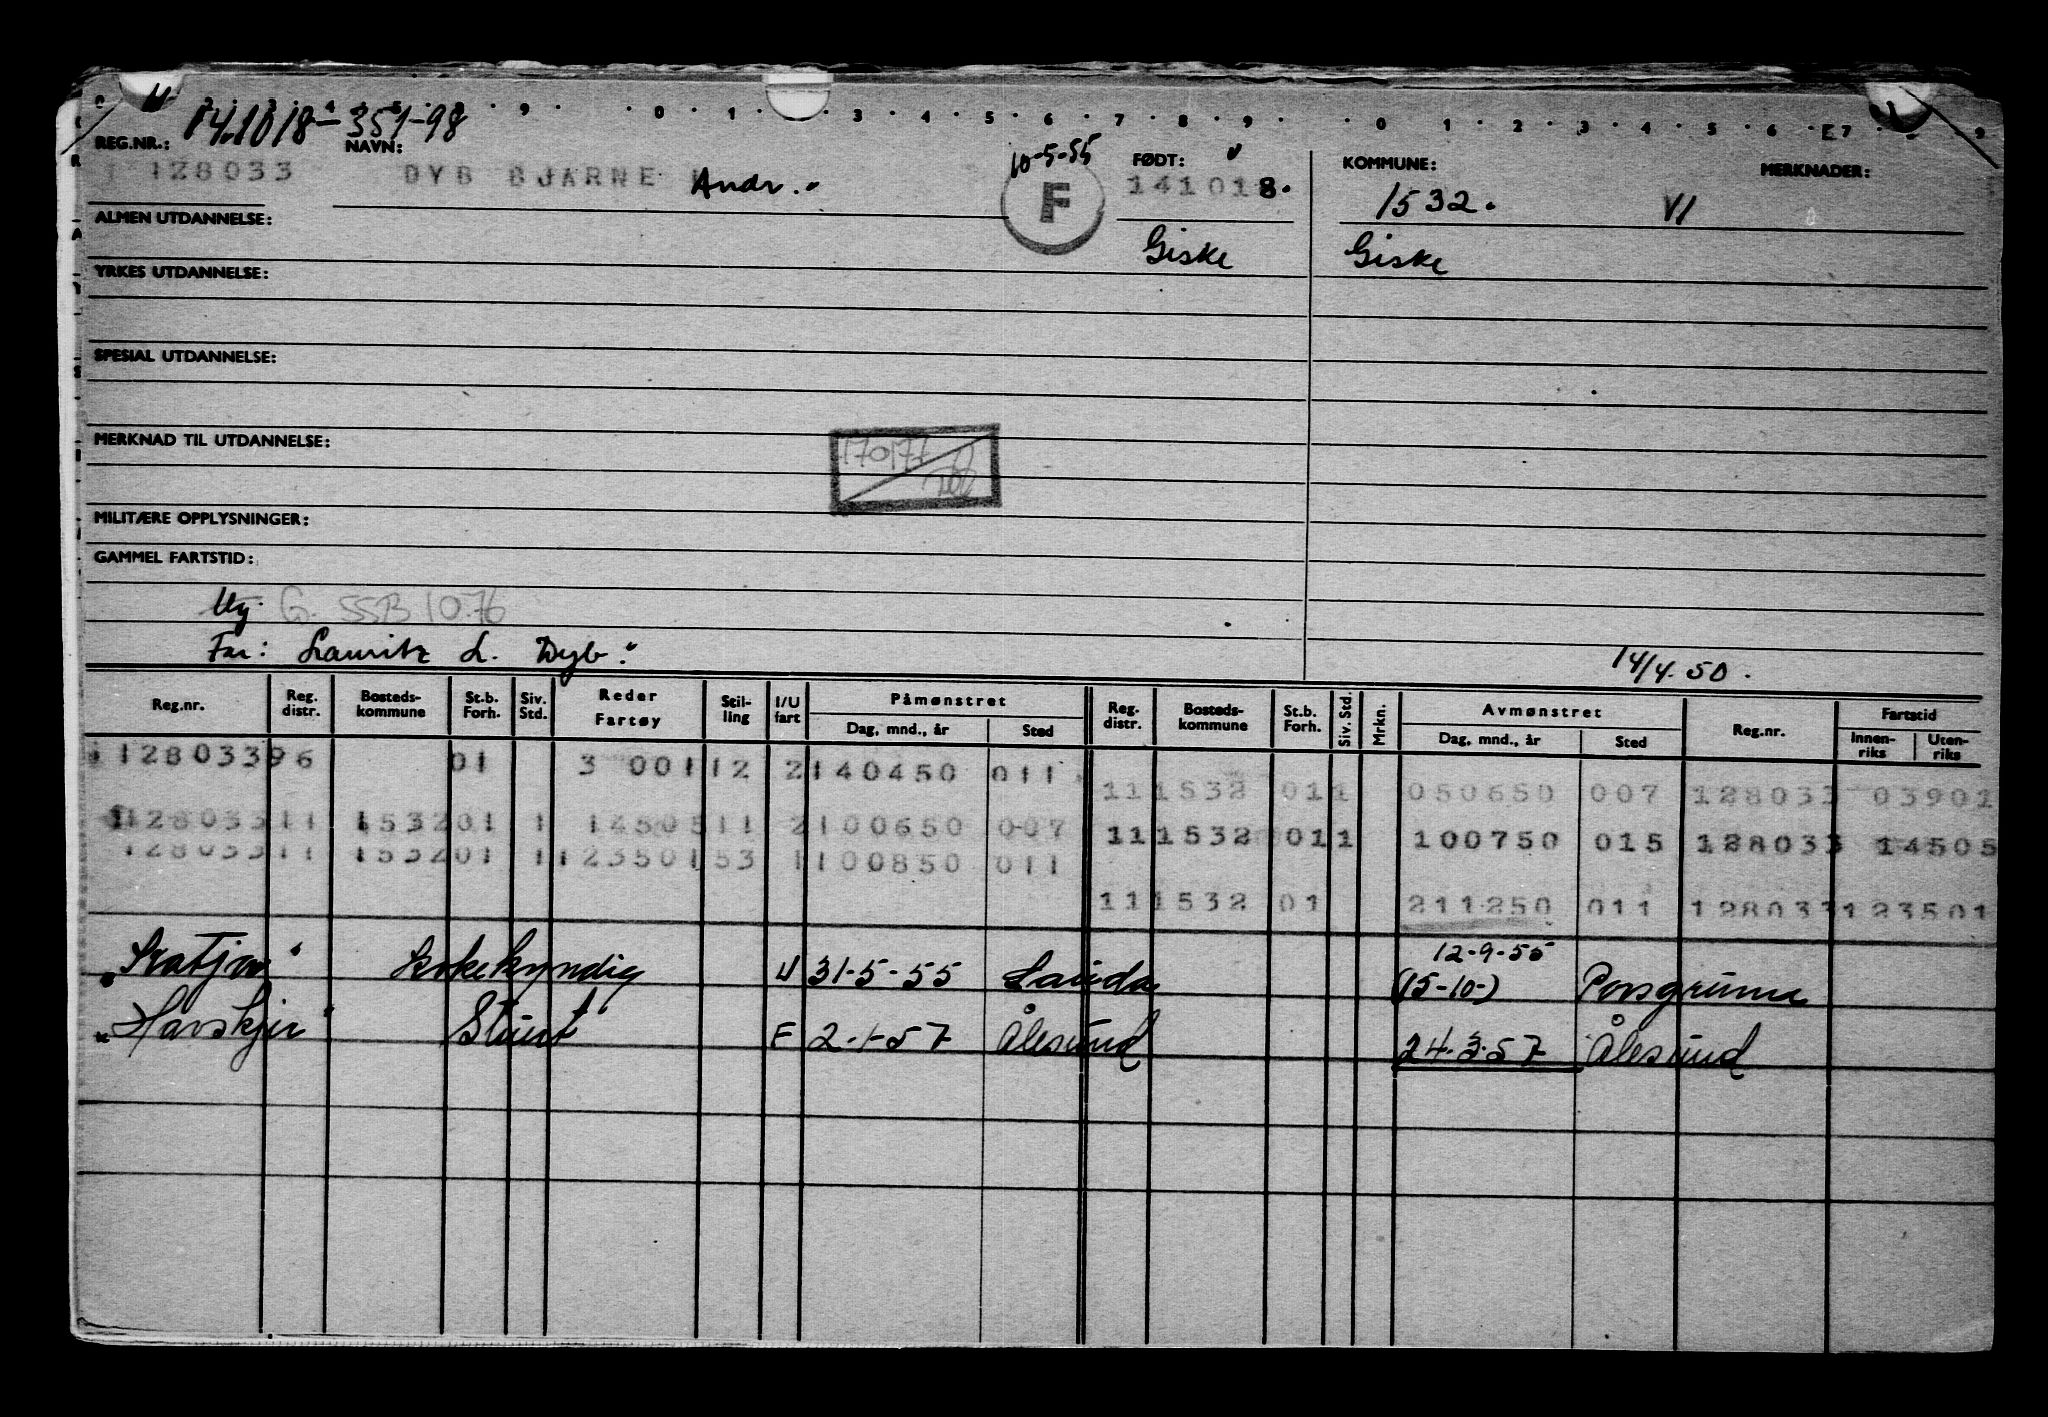 141018-351-98
REG.NR.: NAVN: 10-5-55 FØDT: KOMMUNE: MERKNADER:
128033 DYB BJARNE Andr. F 141018. 1532. VI
ALMEN UTDANNELSE: Giske Giske
YRKES UTDANNELSE:
SPESIAL UTDANNELSE:
MERKNAD TIL UTDANNELSE: 170177
MILITÆRE OPPLYSNINGER:
GAMMEL FARTSTID:
Utg. G. SSB 10.76
Far: Lauritz L. Dyb. 14/4.50.
Reg.nr. Reg. distr. Bosteds-kommune St.b. Forh. Siv. Std. Reder Fartøy Stil-ling I/U fart Påmønstret Dag, mnd., år Sted Reg. distr. Bosteds-kommune St.b. Forh. Siv. Std. Mrkn. Avmønstret Dag, mnd., år Sted Reg.nr. Fartstid Innen-riks Uten-riks
12803396 01 3 00112 2140450 011
111532 011 050650 007 128033 03901
12803311 153201 1 1450511 2100650 007
111532 011 100750 015 128033 14505
12803311 153201 112350153 1100850 011
111532 01 211250 011 128033123501
12-9-55
Kokekyndig U 31-5-55 (15-10-) Porsgrunn
Havskjer Stuert F 2-1-57 Ålesund 24.3.57 Ålesund